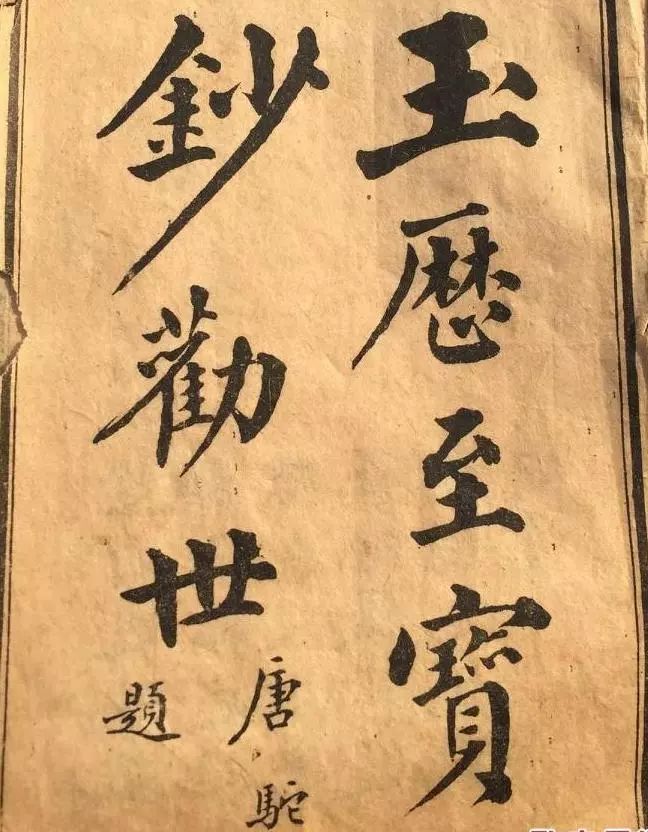 玉歷至寶
鈔勸世
唐駝
題